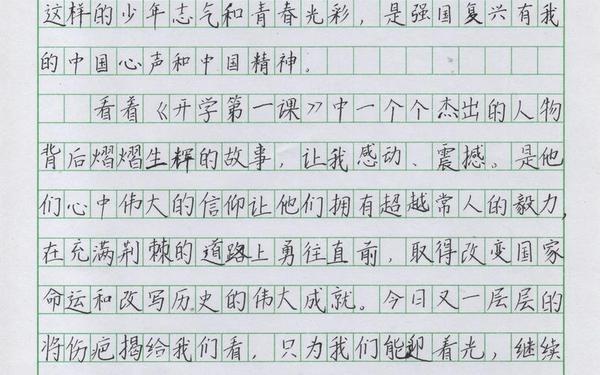 这样的少年志气和青春光彩，是强国复兴有我
的中国心声和中国精神。
看着《开学第一课》中一个个杰出的人物
背后熠熠生辉的故事，让我感动、震撼。是他
们心中伟大的信仰让他们拥有超越常人的毅力，
在充满荆棘的道路上勇往直前，取得改变国家
命运和改写历史的伟大成就。今日又一层层的
将伤疤揭给我们看，只为我们能迎着光，继续